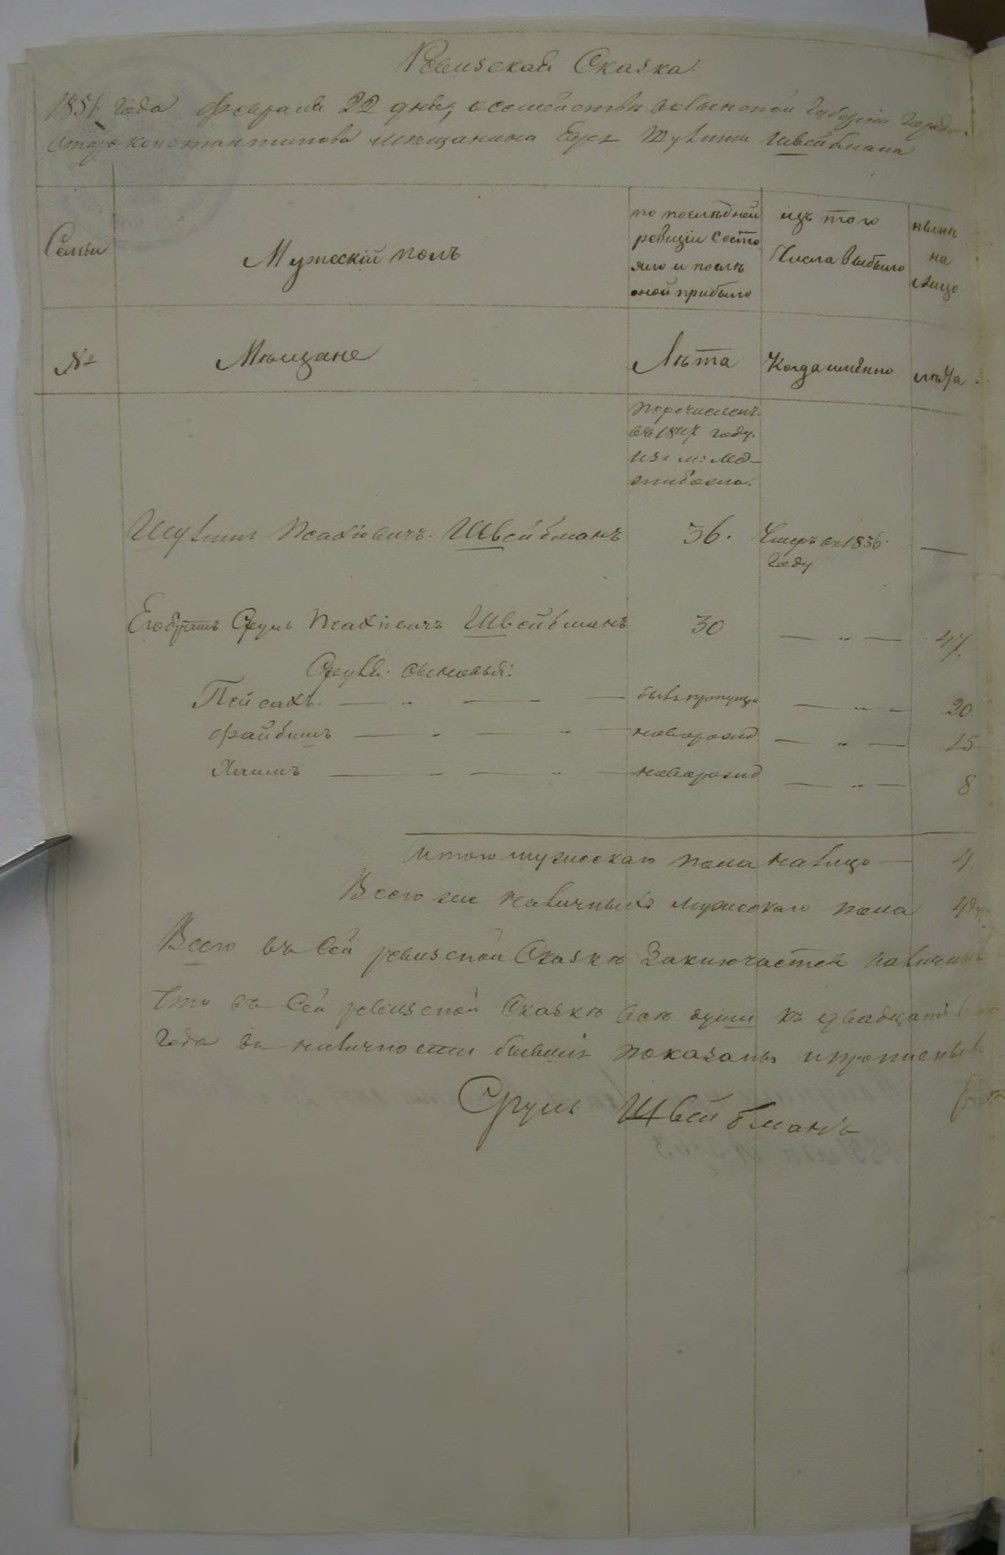 Ревизская Сказка
1851 года февраля 22 дня, о семействи волынской Губерніи города
Старо константинова мещанина Еврея Шулима Швейбмана
Семьи
Мужескій полъ
по последней
ревизіи состо
яло и после
оной прибыло
изъ того
Числа выбыло
ныне
на
лицо
№
Мещане
Лѣта
Когда именно
лѣта
перечисленъ
въ 1847 году
изъ м: Мед-
жибожа.
Шулимъ Псахіовичъ Швейбманъ 36. Умеръ въ 1836 году —
Его братъ Сруль Псахіовичъ Швейбманъ 30 — „ — 47
Сруля сыновья:
Пейсахъ — „ — — бывъ пропущ — „ — 20
Файбишъ — „ — „ — новорожд — „ — 15
Хаимъ — „ — „ — новорожд — „ — 8
Итого мужескаго пола на лицо — 4
Всего же наличныхъ мужескаго пола 4
Всего въ сей ревизской Сказке Заключается наличныхъ
Что въ Сей ревизской Сказке все души къ двадцать
Года въ наличности бывшіе показаны и прописныхъ
Сруль Швейбманъ